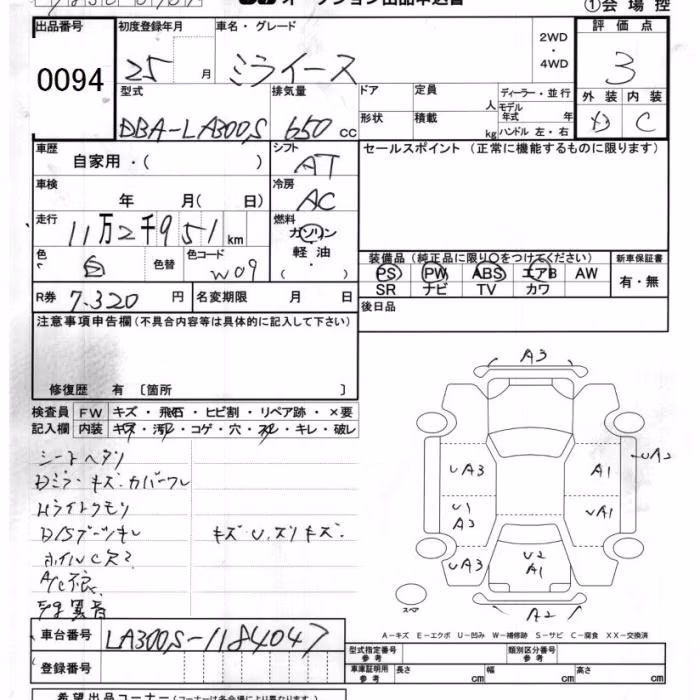 オークション出品申込書 ①会場控
出品番号 初度登録年月 車名・グレード 評価点
0094 25 月 ミライース 2WD・4WD 3
型式 排気量 ドア 定員 人 ディーラー・並行 外装 内装
DBA-LA300S 650 cc 形状 積載 kg モデル年式 年 ハンドル 左・右 C
車歴 自家用・( ) シフト AT セールスポイント (正常に機能するものに限ります)
車検 年 月( 日) 冷房 AC
走行 11万2千951 km 燃料 ガソリン
軽油
・( )
色 白 色替 色コード W09
装備品 (純正品に限り○をつけてください) 新車保証書
PS PW ABS エアB AW 有・無
SR ナビ TV カワ
R券 7,320 円 名変期限 月 日 後日品
注意事項申告欄 (不具合内容等は具体的に記入して下さい)
修復歴 有 [箇所 ]
検査員 FW キズ・飛石・ヒビ割・リペア跡・×要
記入欄 内装 キズ・汚れ・コゲ・穴・スレ・キレ・破レ
シートヘタリ
Dミラーキズ・カバーワレ
Hライトクモリ
D/Sブーツキレ キズ・U・スリキズ・
ホイルCスミ
A/C不良
異音
A3
UA3 A1 UA2
U1 A3 UA1
UA3 U2 A1
スペア A2
A-キズ E-エクボ U-凹み W-補修跡 S-サビ C-腐食 XX-交換済
車台番号 LA300S-1184047
登録番号
型式指定番号 参考 類別区分番号 参考
車庫証明用 参考 長さ cm 幅 cm 高さ cm
希望出品コーナー (コーナーは各会場により異なります)